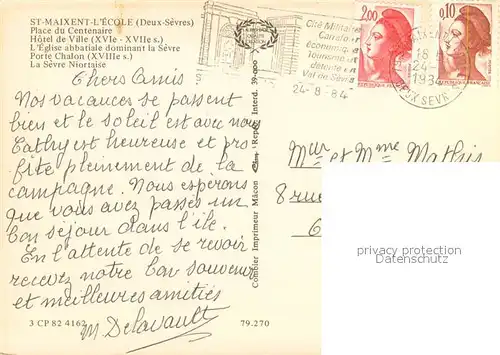 ST-MAIXENT-L'ÉCOLE (Deux-Sèvres)
Place du Centenaire
Hôtel de Ville (XVIe - XVIIe s.)
L'Église abbatiale dominant la Sèvre
Porte Chalon (XVIIIe s.)
La Sèvre Niortaise
Chers Amis
Nos vacances se passent
bien et le soleil est avec nous
Cathy est heureuse et pro
fite pleinement de la
campagne. Nous espérons
que vous avez passés un
bon séjour dans l'île.
En l'attente de se revoir
recevez notre bon souvenir
et meilleures amitiés
M. Delavault
3 CP 82 4162
79.270
Combier Imprimeur Mâcon
Repro. Interd.
Cité Militaire
Carrefour
économique
Tourisme et
détente en
Val de Sèvre
24-8-84
2,00
0,10
18 H
24-8
1984
DEUX SEVRES
Mur et Mme Mathis
8 rue
6
privacy protection
DELCAMPE.COM